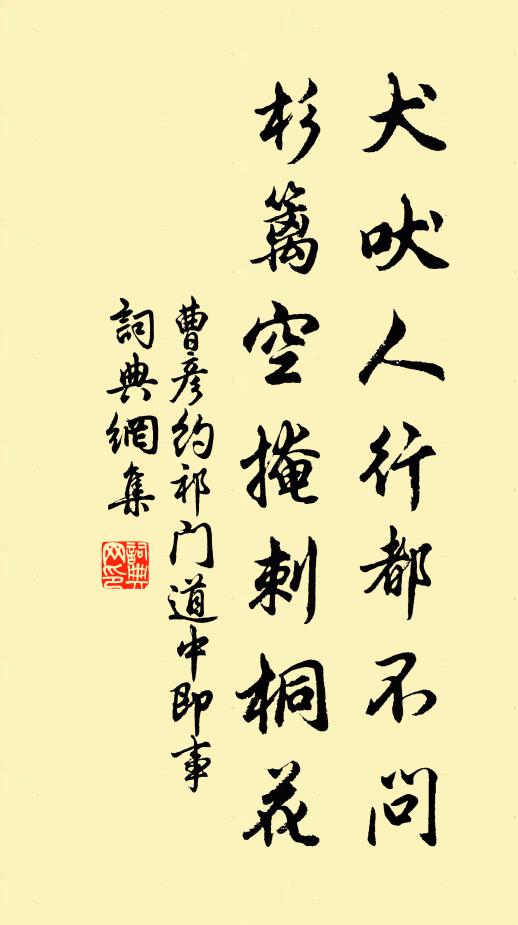 犬吠人行都不问
杉篱空掩刺桐花
曹彦约祁门道中即事
詞典網集
詞典网印